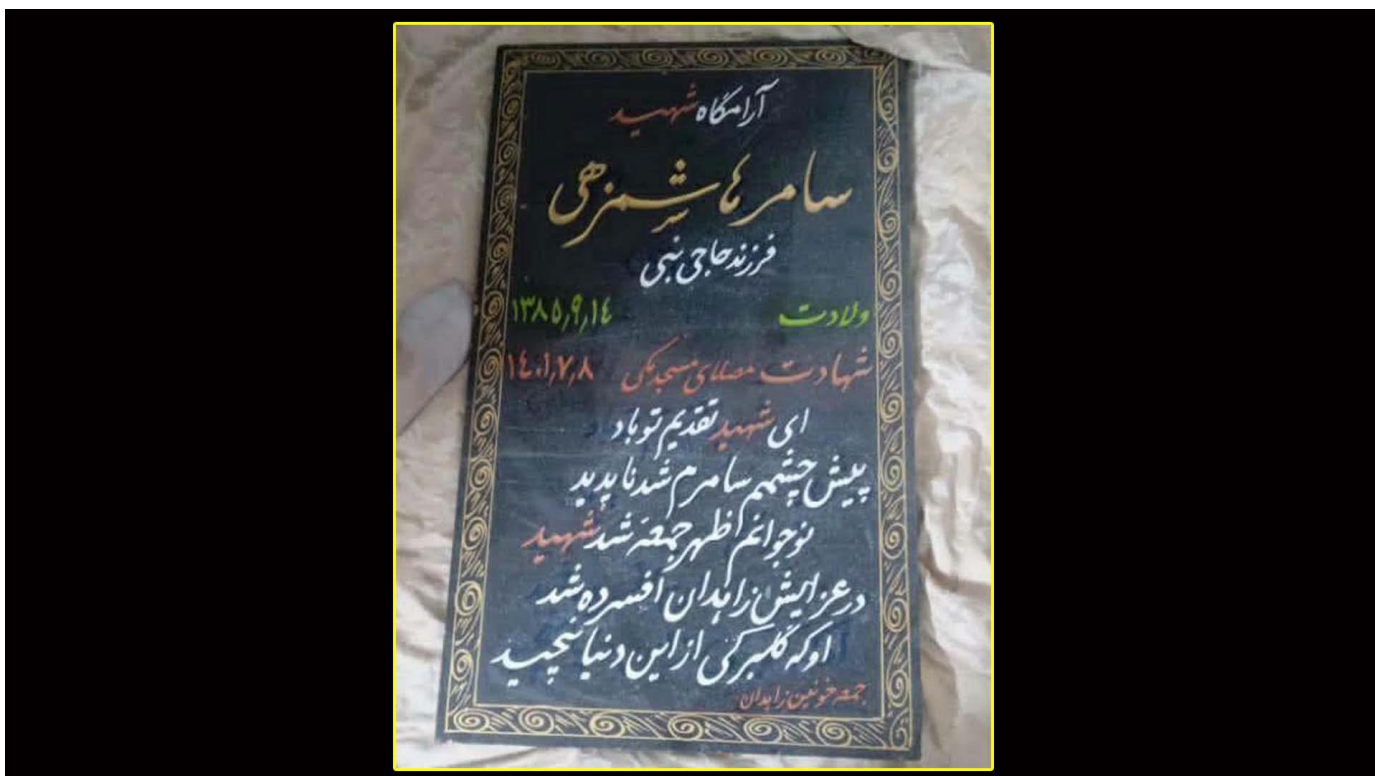 آرامگاه شهید
سامر هاشمزهی
فرزند حاجی نبی
ولادت ۱۳۸۵٫۹٫۱۴
شهادت مصلای مسجد مکی ۱۴۰۱٫۷٫۸
ای شهید تقدیم تو باد
پیش چشمم سامرم شد ناپدید
نوجوانم ظهر جمعه شد شهید
در عزایش زاهدان افسرده شد
او که گلبرگی از این دنیا نچید
جمعه خونین زاهدان